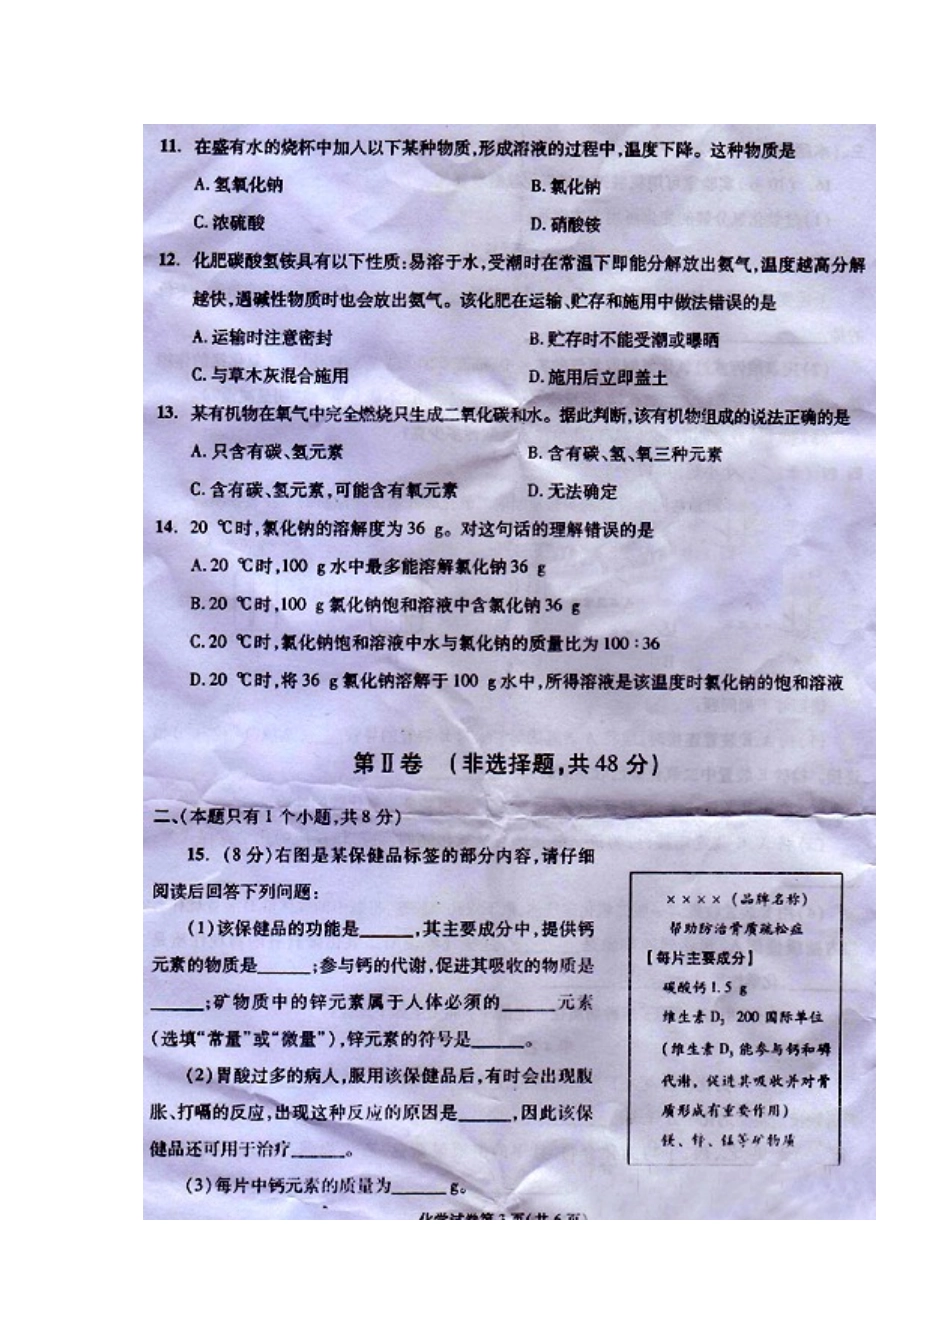 11. 在盛有水的烧杯中加入以下某种物质,形成溶液的过程中,温度下降。这种物质是
A. 氢氧化钠 B. 氯化钠
C. 浓硫酸 D. 硝酸铵
12. 化肥碳酸氢铵具有以下性质:易溶于水,受潮时在常温下即能分解放出氨气,温度越高分解
越快,遇碱性物质时也会放出氨气。该化肥在运输、贮存和施用中做法错误的是
A. 运输时注意密封 B. 贮存时不能受潮或曝晒
C. 与草木灰混合施用 D. 施用后立即盖土
13. 某有机物在氧气中完全燃烧只生成二氧化碳和水。据此判断,该有机物组成的说法正确的是
A. 只含有碳、氢元素 B. 含有碳、氢、氧三种元素
C. 含有碳、氢元素,可能含有氧元素 D. 无法确定
14. 20 ℃时,氯化钠的溶解度为 36 g。对这句话的理解错误的是
A. 20 ℃时,100 g 水中最多能溶解氯化钠 36 g
B. 20 ℃时,100 g 氯化钠饱和溶液中含氯化钠 36 g
C. 20 ℃时,氯化钠饱和溶液中水与氯化钠的质量比为 100∶36
D. 20 ℃时,将 36 g 氯化钠溶解于 100 g 水中,所得溶液是该温度时氯化钠的饱和溶液
第Ⅱ卷 (非选择题,共 48 分)
二、(本题只有 1 个小题,共 8 分)
15. (8 分)右图是某保健品标签的部分内容,请仔细
阅读后回答下列问题:
(1)该保健品的功能是______,其主要成分中,提供钙
元素的物质是______;参与钙的代谢,促进其吸收的物质是
______;矿物质中的锌元素属于人体必须的______元素
(选填“常量”或“微量”),锌元素的符号是______。
(2)胃酸过多的病人,服用该保健品后,有时会出现腹
胀、打嗝的反应,出现这种反应的原因是______,因此该保
健品还可用于治疗______。
(3)每片中钙元素的质量为______g。
××××(品牌名称)
帮助防治骨质疏松症
【每片主要成分】
碳酸钙 1.5 g
维生素 D₃ 200 国际单位
(维生素 D₃ 能参与钙和磷
代谢,促进其吸收并对骨
质形成有重要作用)
镁、锌、锰等矿物质
化学试卷第 3 页(共 6 页)